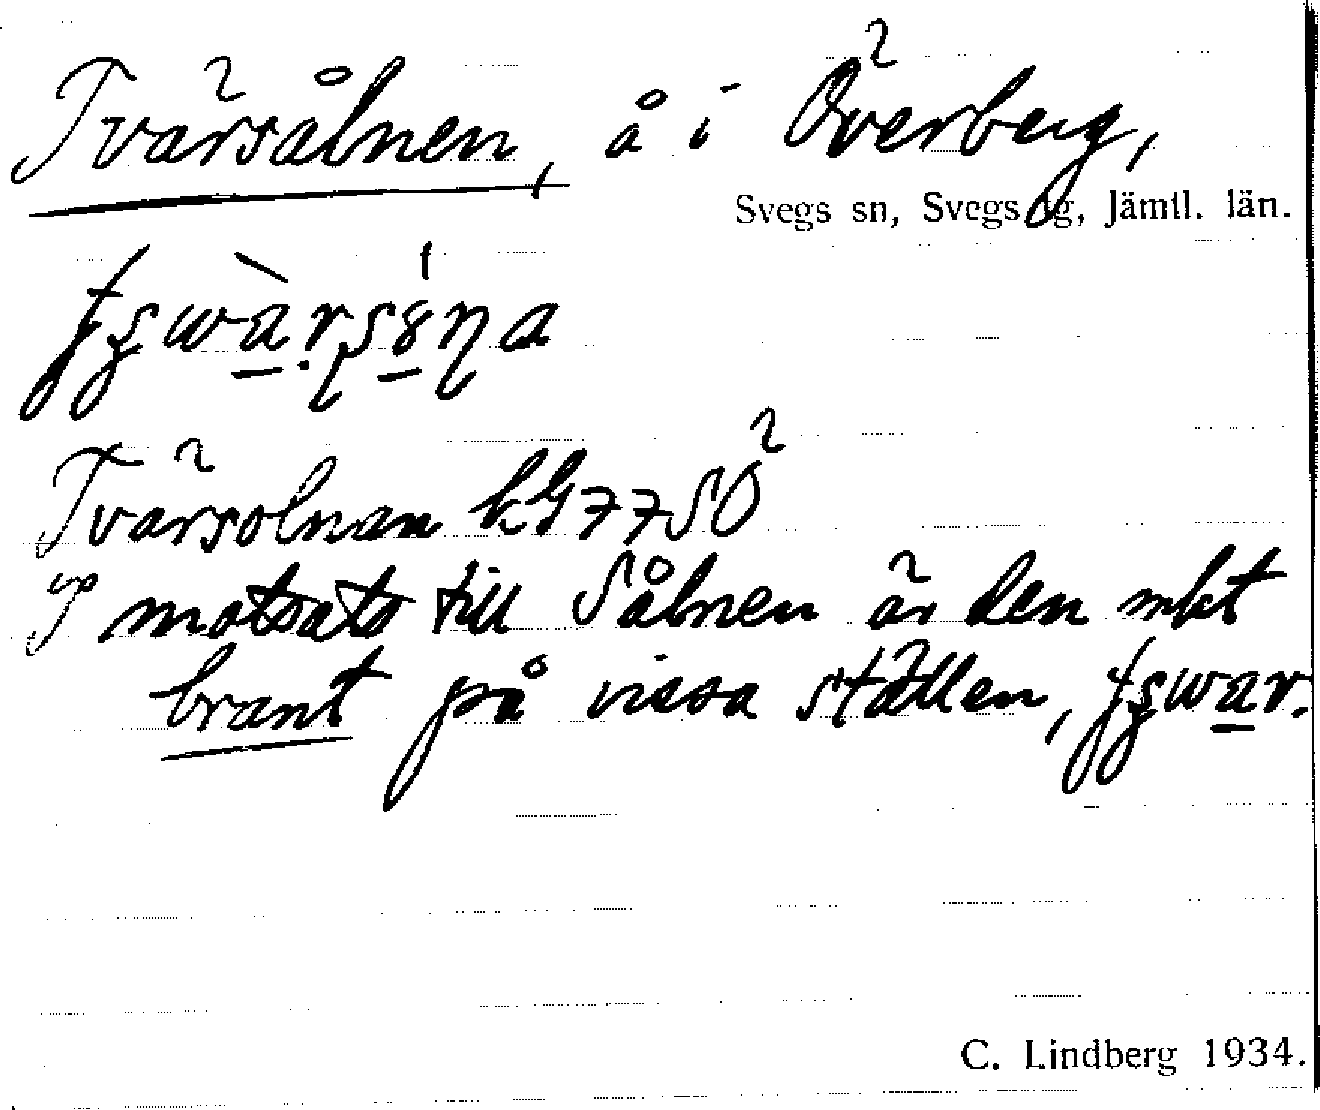 Tvärsålnen, å i Överberg,
Svegs sn, Svegs tg, Jämtl. län.
Tvärsolnan kG 77 SÖ
I motsats till Sålnen är den mkt
brant på vissa ställen,
C. Lindberg 1934.